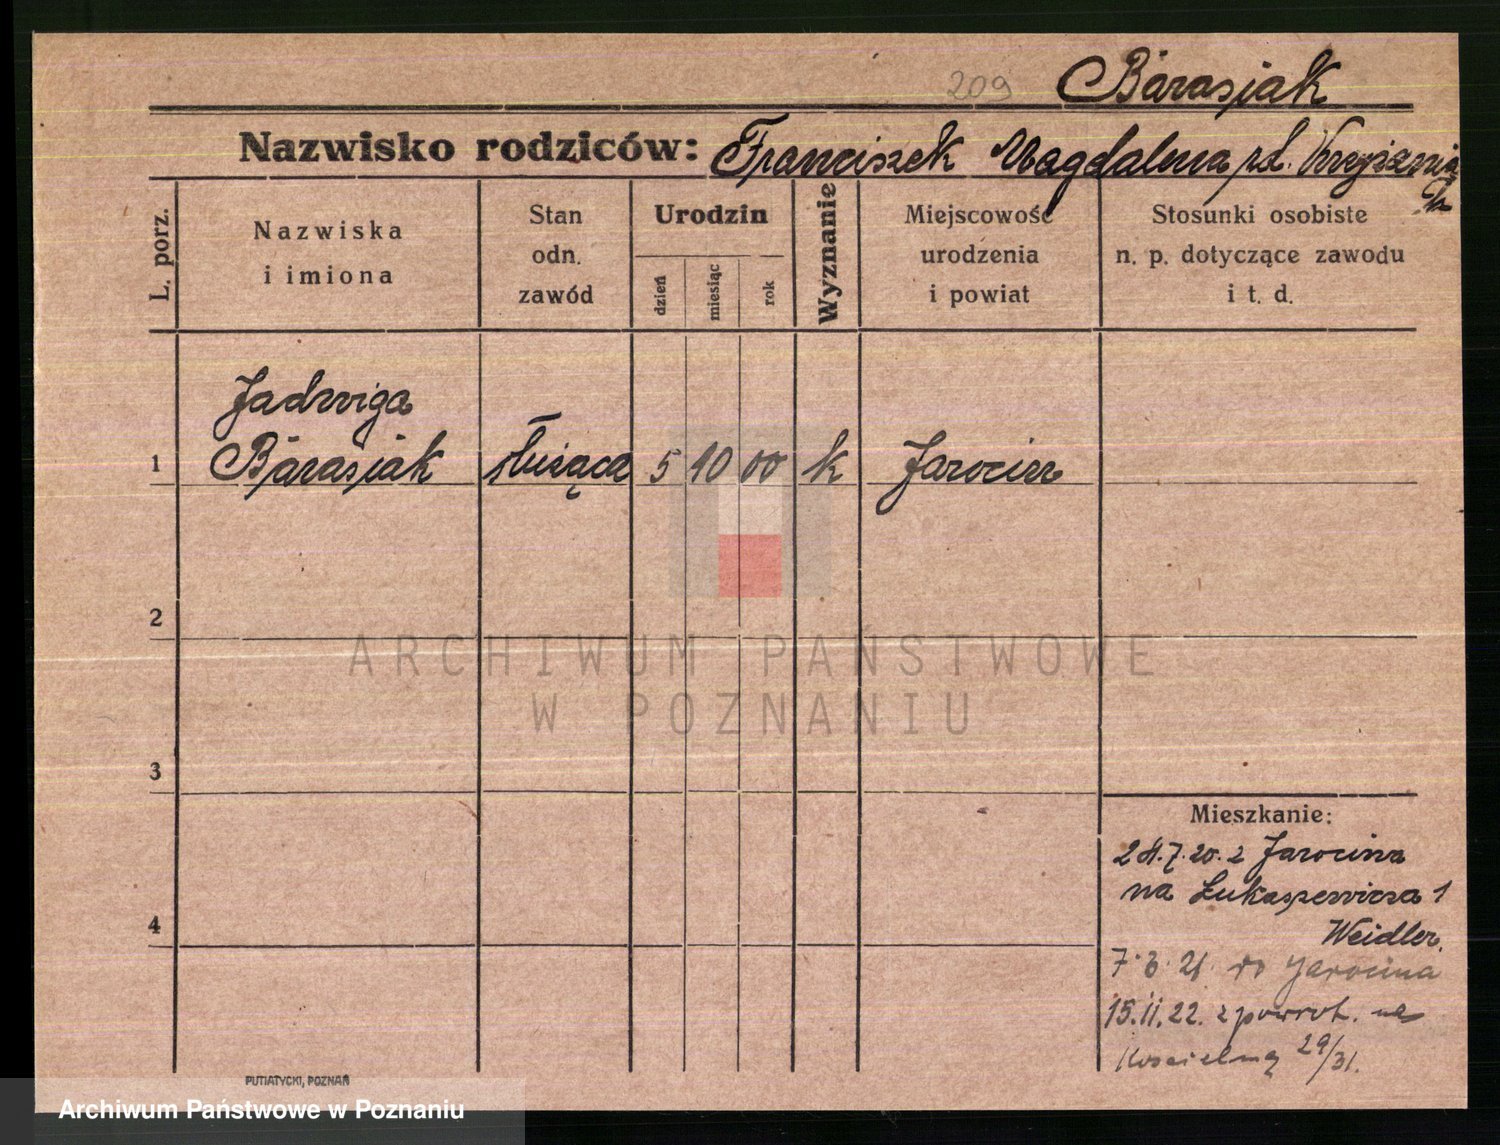 209 Barasiak
Nazwisko rodziców: Franciszek Magdalena zd.
L. porz.
Nazwiska
i imiona
Stan
odn.
zawód
Urodzin
dzień
miesiąc
rok
Wyznanie
Miejscowość
urodzenia
i powiat
Stosunki osobiste
n. p. dotyczące zawodu
i t. d.
Jadwiga
1 Barasiak służąca 5 10 00 k Jarocin
2
3
4
Mieszkanie:
28.7.20. z Jarocina
na Łukaszewicza 1
Weidler.
7.3.21. do Jarocina
15.11.22. z powrot. na
Kościelną 29/31.
PUTIATYCKI, POZNAŃ
ARCHIWUM PAŃSTWOWE
W POZNANIU
Archiwum Państwowe w Poznaniu